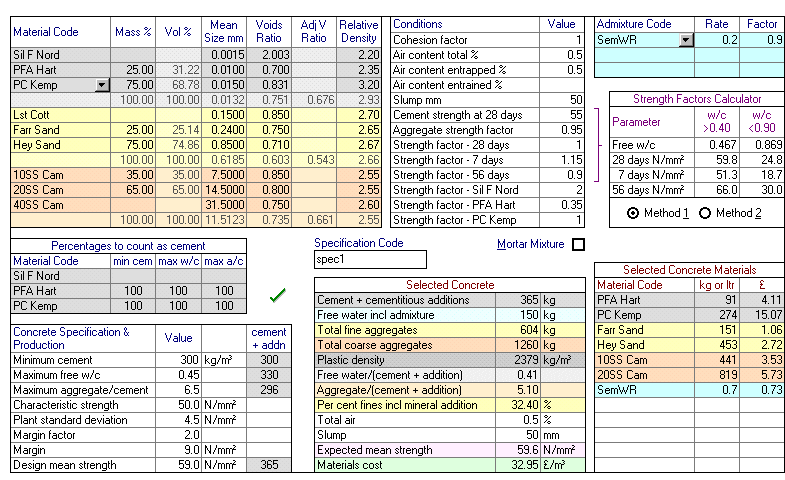 Material Code Mass % Vol % Mean Size mm Voids Ratio Adj V Ratio Relative Density
Sil F Nord 0.0015 2.003 2.20
PFA Hart 25.00 31.22 0.0100 0.700 2.35
PC Kemp 75.00 68.78 0.0150 0.831 3.20
100.00 100.00 0.0132 0.751 0.676 2.93
Lst Cott 0.1500 0.850 2.70
Farr Sand 25.00 25.14 0.2400 0.750 2.65
Hey Sand 75.00 74.86 0.8500 0.710 2.67
100.00 100.00 0.6185 0.603 0.543 2.66
10SS Cam 35.00 35.00 7.5000 0.850 2.55
20SS Cam 65.00 65.00 14.5000 0.800 2.55
40SS Cam 31.5000 0.750 2.60
100.00 100.00 11.5123 0.735 0.661 2.55
Conditions Value
Cohesion factor 1
Air content total % 0.5
Air content entrapped % 0.5
Air content entrained %
Slump mm 50
Cement strength at 28 days 55
Aggregate strength factor 0.95
Strength factor - 28 days 1
Strength factor - 7 days 1.15
Strength factor - 56 days 0.9
Strength factor - Sil F Nord 2
Strength factor - PFA Hart 0.35
Strength factor - PC Kemp 1
Admixture Code Rate Factor
SemWR 0.2 0.9
Strength Factors Calculator
Parameter w/c >0.40 w/c <0.90
Free w/c 0.467 0.869
28 days N/mm² 59.8 24.8
7 days N/mm² 51.3 18.7
56 days N/mm² 66.0 30.0
Method 1 Method 2
Percentages to count as cement
Material Code min cem max w/c max a/c
Sil F Nord
PFA Hart 100 100 100
PC Kemp 100 100 100
Specification Code
spec1
Mortar Mixture
Concrete Specification & Production Value cement + addn
Minimum cement 300 kg/m³ 300
Maximum free w/c 0.45 330
Maximum aggregate/cement 6.5 296
Characteristic strength 50.0 N/mm²
Plant standard deviation 4.5 N/mm²
Margin factor 2.0
Margin 9.0 N/mm²
Design mean strength 59.0 N/mm² 365
Selected Concrete
Cement + cementitious additions 365 kg
Free water incl admixture 150 kg
Total fine aggregates 604 kg
Total coarse aggregates 1260 kg
Plastic density 2379 kg/m³
Free water/(cement + addition) 0.41
Aggregate/(cement + addition) 5.10
Per cent fines incl mineral addition 32.40 %
Total air 0.5 %
Slump 50 mm
Expected mean strength 59.6 N/mm²
Materials cost 32.95 £/m³
Selected Concrete Materials
Material Code kg or ltr £
PFA Hart 91 4.11
PC Kemp 274 15.07
Farr Sand 151 1.06
Hey Sand 453 2.72
10SS Cam 441 3.53
20SS Cam 819 5.73
SemWR 0.7 0.73